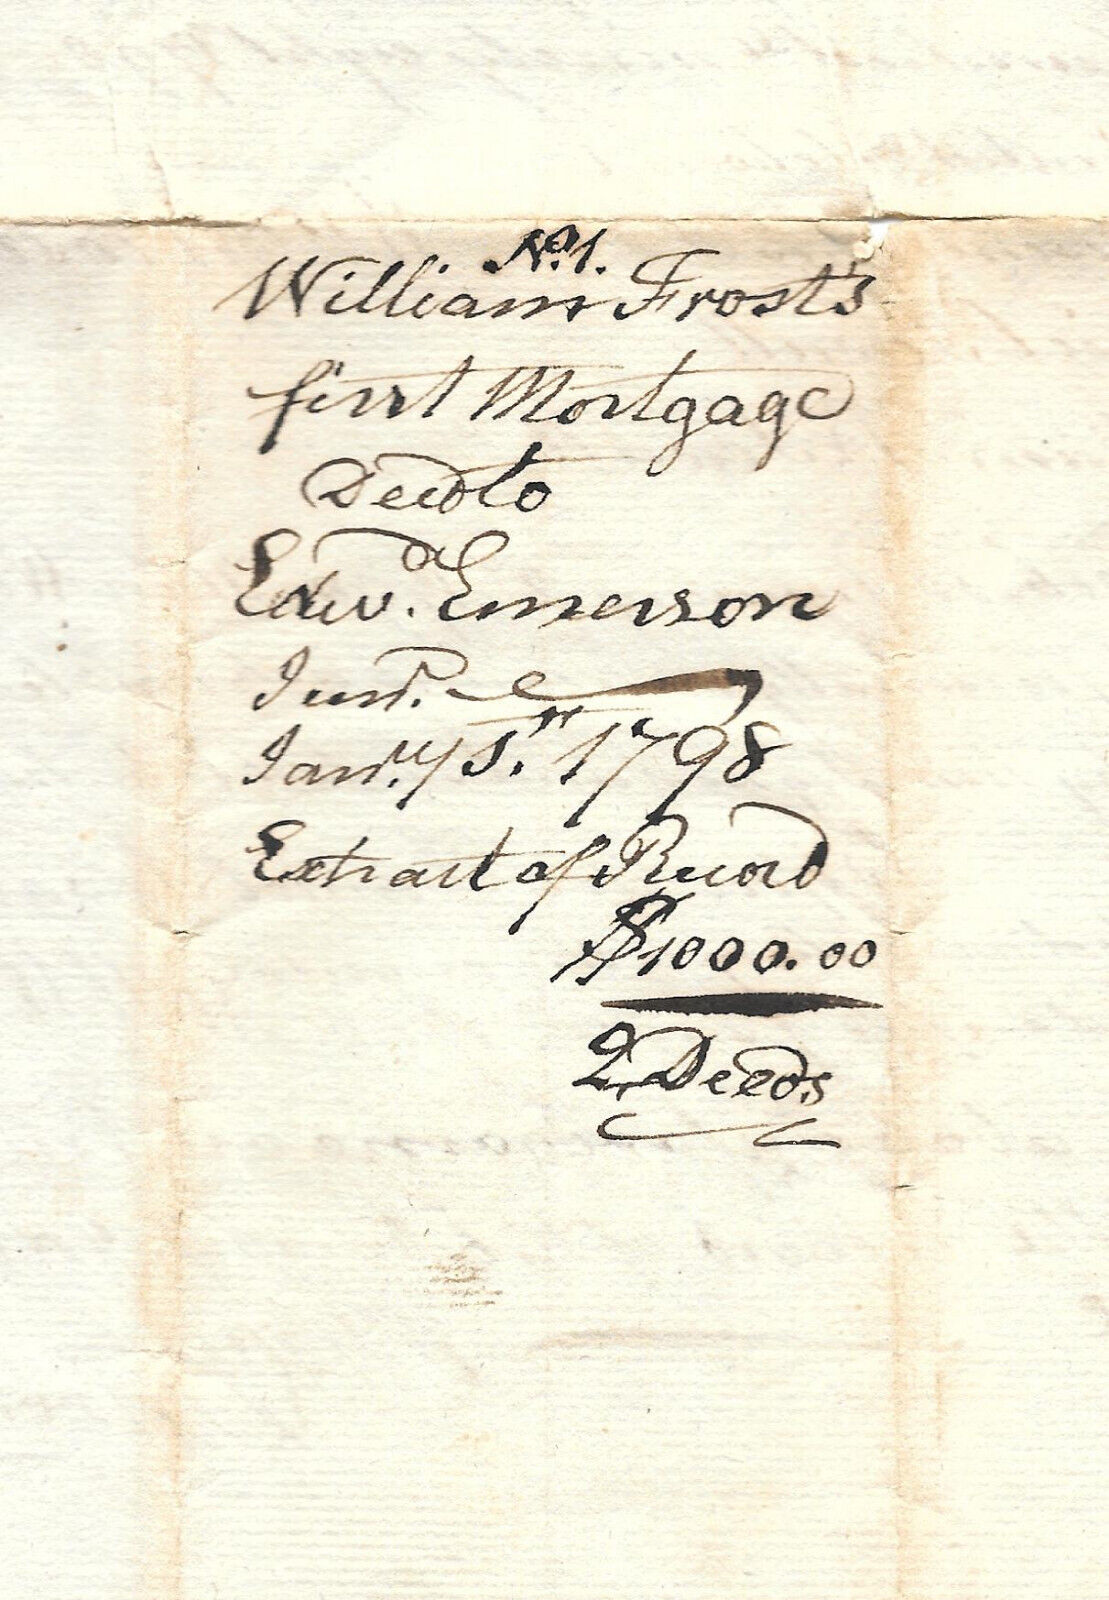 No. 1.
William Frost's
first Mortgage
Deed to
Edwd. Emerson
Junr.
Jany. 1798
Extract of Record
$1000.00
2, Deeds